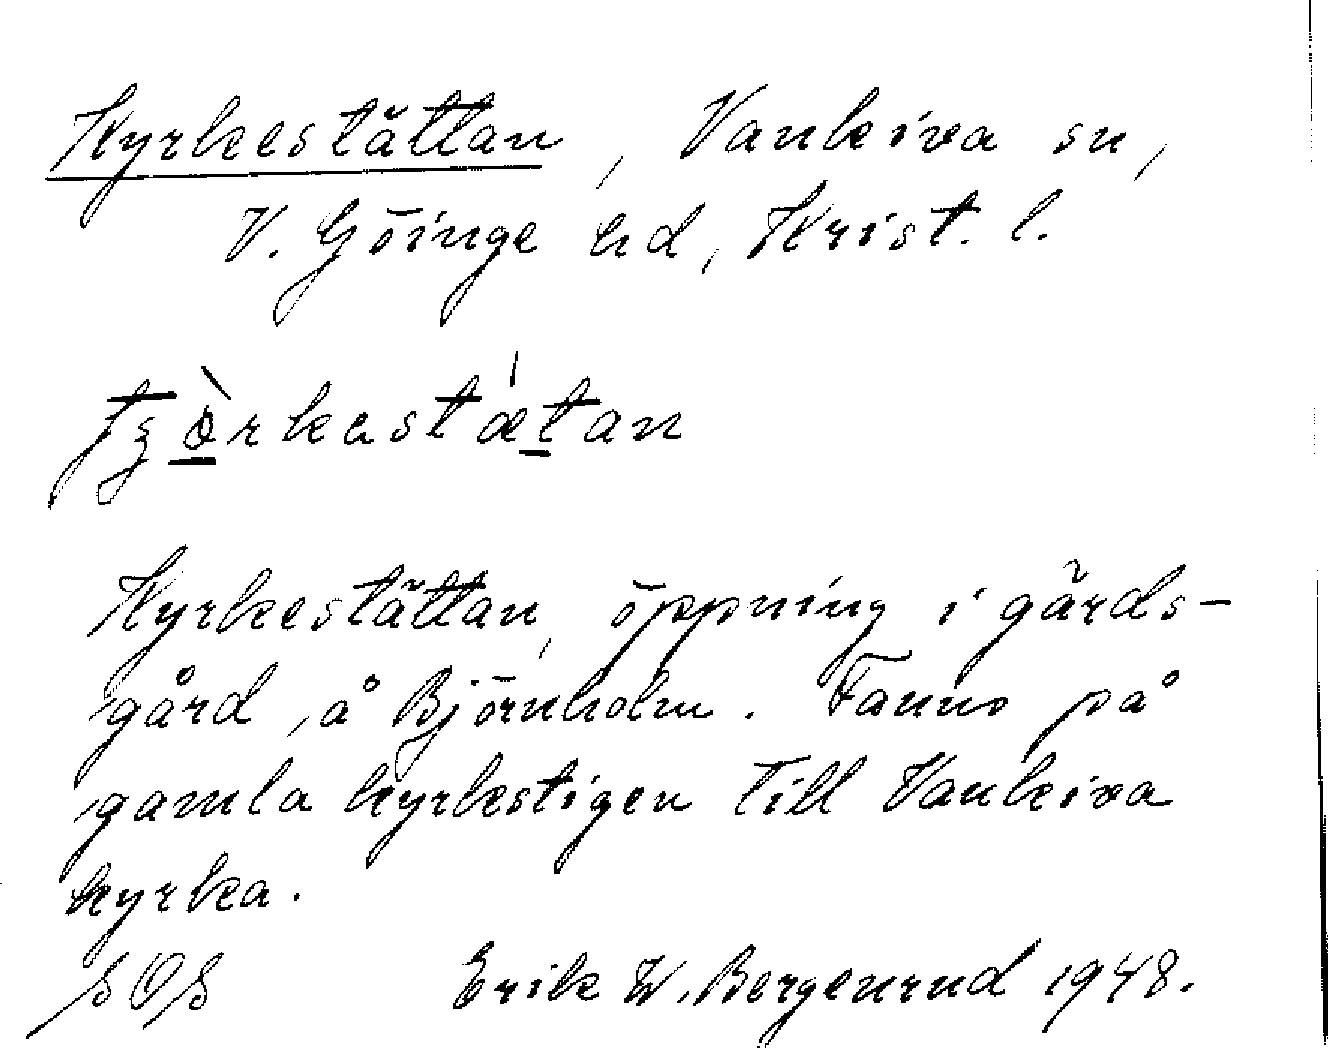 Kyrkestättan, Vankiva sn,
V. Göinge hd, Krist. l.
Kyrkestättan, öppning i gärds-
gård, å Björnholm. Fanns på
gamla kyrkstigen till Vankiva
kyrka.
SOS Erik W. Bergenrud 1948.